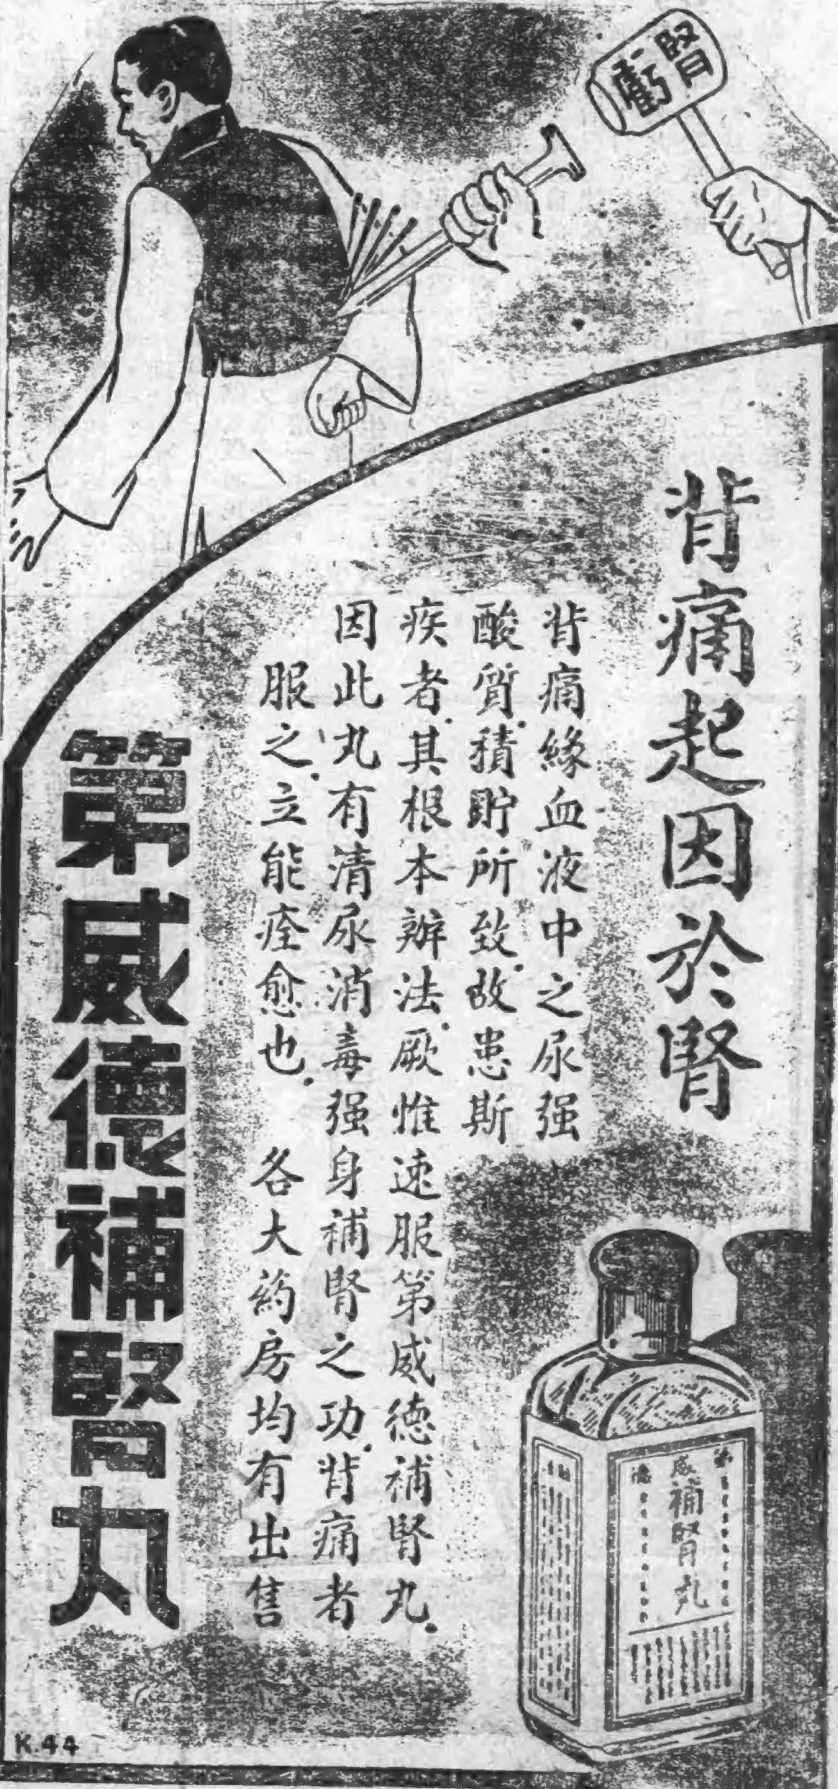 腎虧
背痛起因於腎
背痛緣血液中之尿强
酸質積貯所致.故患斯
疾者.其根本辦法.厥惟速服第威德補腎丸.
因此丸有清尿消毒强身補腎之功.背痛者
服之.立能痊愈也.　各大葯房均有出售
第威德補腎丸
第威德
補腎丸
K.44